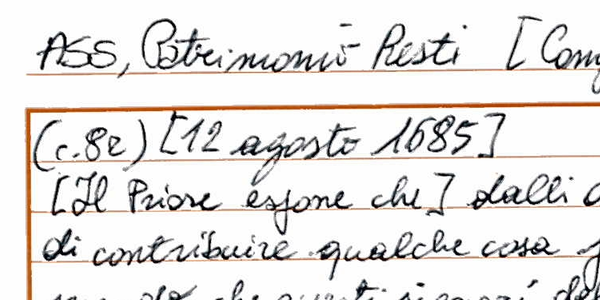 ASS, Patrimonio Resti [Com
(c.8r) [12 agosto 1685]
[Il Priore espone che] dalli
di contribuire qualche cosa
che questi signori